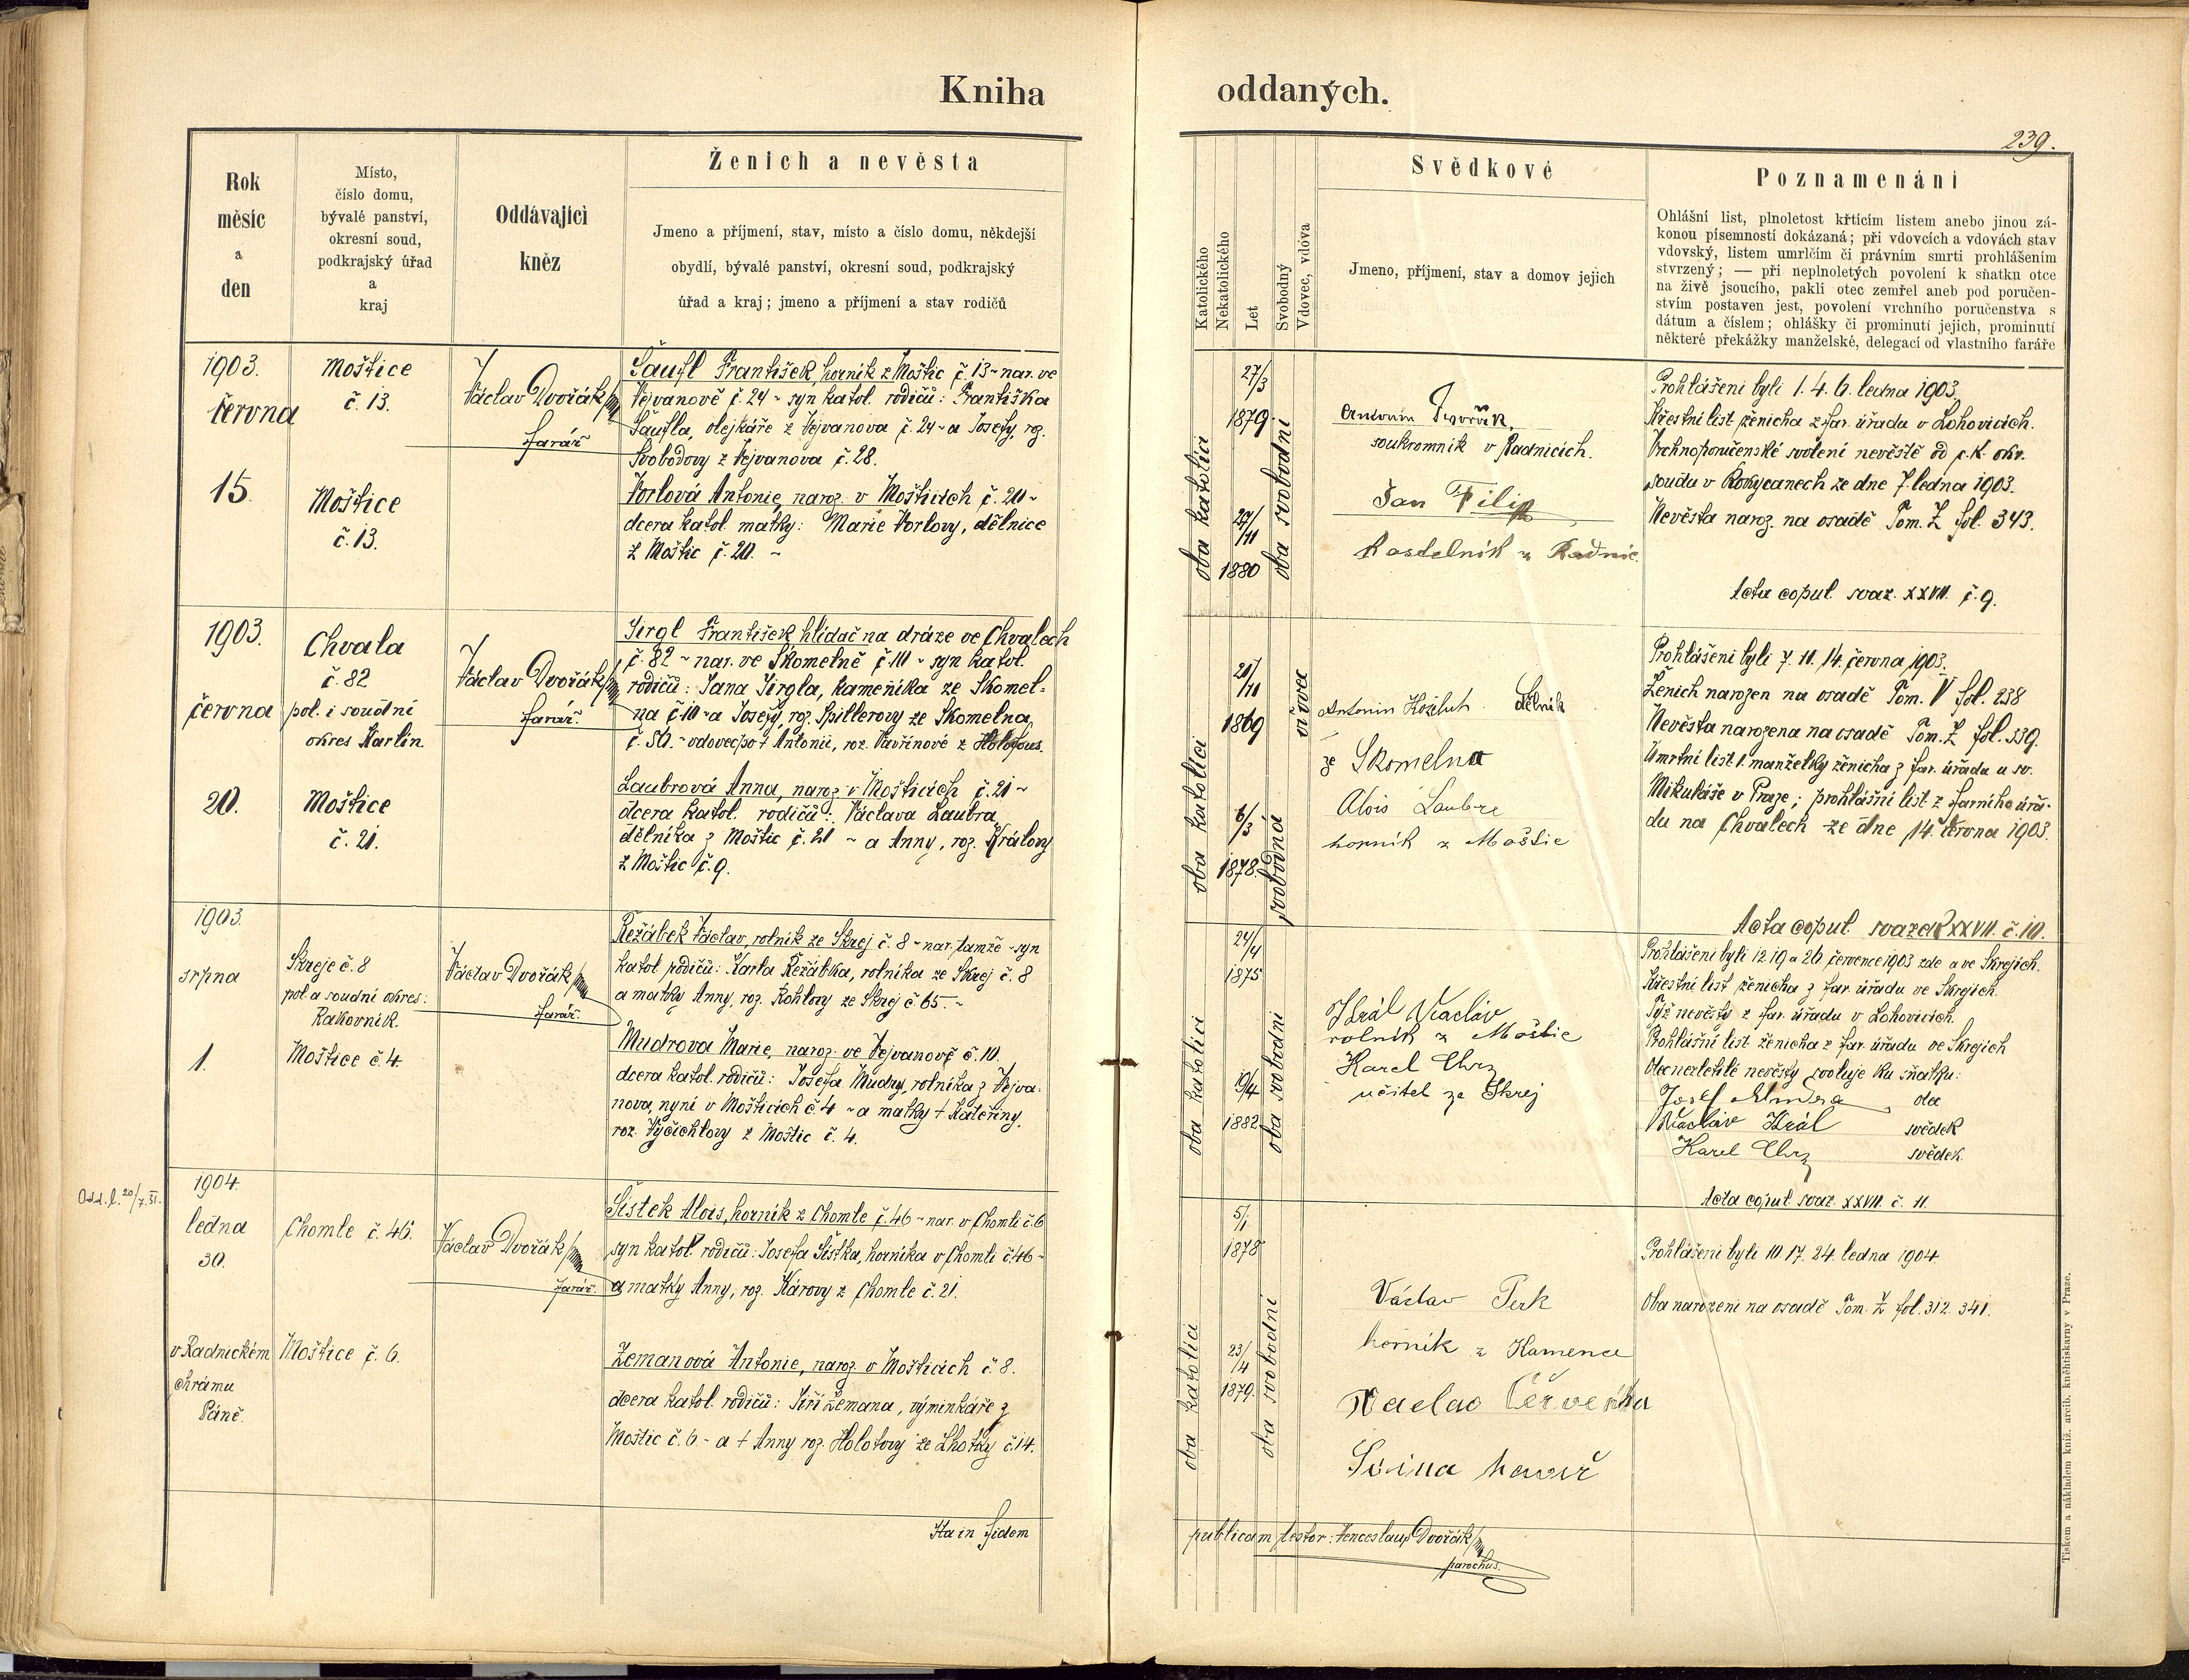 Kniha
oddaných.
239.
Rok
měsíc
a
den
Místo,
číslo domu,
bývalé panství,
okresní soud,
podkrajský úřad
a
kraj
Oddávající
kněz
Ženich a nevěsta
Jmeno a příjmení, stav, místo a číslo domu, někdejší
obydlí, bývalé panství, okresní soud, podkrajský
úřad a kraj; jmeno a příjmení a stav rodičů
Katolického
Nekatolického
Let
Svobodný
Vdovec, vdova
Svědkové
Jmeno, příjmení, stav a domov jejich
Poznamenání
Ohlášní list, plnoletost křtícím listem anebo jinou zá-
konou písemností dokázaná; při vdovcích a vdovách stav
vdovský, listem umrlčím či právním smrti prohlášením
stvrzený; — při neplnoletých povolení k sňatku otce
na živě jsoucího, pakli otec zemřel aneb pod poručen-
stvím postaven jest, povolení vrchního poručenstva s
dátum a číslem; ohlášky či prominutí jejich, prominutí
některé překážky manželské, delegací od vlastního faráře
1903.
června
15.
Moštice
č. 13.
Moštice
č. 13.
Václav Dvořák
farář
Šaufl František, horník z Moštic č. 13 ~ nar. ve
Vejvanově č. 24 ~ syn katol. rodičů: Františka
Šaufla, olejkáře z Vejvanova č. 24 ~ a Josefy, roz.
Svobodovy z Vejvanova č. 28.
Vorlová Antonie, naroz. v Mošticích č. 20 ~
dcera katol. matky: Marie Vorlovy, dělnice
z Moštic č. 20. ~
oba katolíci
27/3
1879.
27/11
1880
oba svobodní
Antonín Dvořák,
soukromník v Radnicích.
Jan Filip
kostelník z Radnic
Prohlášeni byli 1. 4. 6. ledna 1903.
Křestní list ženicha z far. úřadu v Lohovicích.
Vrchnoporučenské svolení nevěstě od c. k. okr.
soudu v Rokycanech ze dne 7 ledna 1903.
Nevěsta naroz. na osadě Tom. Z fol. 343.
Acta copul. svaz. XXVII. č. 9.
1903.
června
20.
Chvala
č. 82
pol. i soudní
okres Karlín.
Moštice
č. 21.
Václav Dvořák
farář.
Jirgl František hlídač na dráze ve Chvalech
č. 82 ~ nar. ve Skomelně č. 10 ~ syn katol.
rodičů: Jana Jirgla, kameníka ze Skomel-
na č. 10 ~ a Josefy, roz. Spillerovy ze Skomelna,
č. 50. ~ vdovec po † Antonii, roz. Vavřinové z Holofous.
Laubrová Anna, naroz. v Mošticích č. 21 ~
dcera katol. rodičů: Václava Laubra,
dělníka z Moštic č. 21 ~ a Anny, roz. Královy
z Moštic č. 9.
oba katolíci
1869
6/3
1878.
svobodná
Antonin Kožluh dělník
ze Skomelna
Alois Laubre
horník z Moštic
Prohlášeni byli 7. 11. 14. června 1903.
Ženich narozen na osadě Tom. V fol. 238
Nevěsta narozena na osadě Tom. Z fol. 339.
Úmrtní list 1. manželky ženicha z far. úřadu u sv.
Mikuláše v Praze; prohlášní list z farního úřa-
du na Chvalech ze dne 14. června 1903.
Acta copul svazek XXVII. č. 10.
1903.
srpna
1.
Skreje č. 8
pol. a soudní okres:
Rakovník.
Moštice č. 4.
Václav Dvořák
farář.
Řežábek Václav, rolník ze Skrej č. 8 ~ nar. tamže ~ syn
katol. rodičů: Karla Řežábka, rolníka ze Skrej č. 8
a matky Anny, roz. Rohlovy ze Skrej č. 65. ~
Mudrova Marie, naroz. ve Vejvanově č. 10.
dcera katol. rodičů: Josefa Mudry, rolníka z Vejva-
nova, nyní v Mošticích č. 4 ~ a matky † Kateřiny,
roz. Vyčichlovy z Moštic č. 4.
oba katolíci
24/4
1875
19/4
1882
oba svobodní
Král Václav
rolník z Moštic
Karel Chrz
učitel ze Skrej
Prohlášeni byli 12 19 a 26 července 1903 zde a ve Skrejích.
Křestní list ženicha z far. úřadu ve Skrejích.
Týž nevěsty z far. úřadu v Lohovicích.
Prohlášní list ženicha z far. úřadu ve Skrejích
Otec nezletilé nevěsty svoluje ku sňatku:
Josef Mudra otec
Václav Král svědek
Karel Chrz svědek.
Acta copul. svaz. XXVII. č. 11.
Odd. l. 20/7.51.
1904.
ledna
30.
v Radnickém
chrámu
Páně.
Chomle č. 46.
Moštice č. 6.
Václav Dvořák
farář.
Šístek Alois, horník z Chomle č. 46 ~ nar. v Chomli č. 6
syn katol. rodičů: Josefa Šístka, horníka v Chomli č. 46 ~
a matky Anny, roz. Károvy z Chomle č. 21.
Zemanová Antonie, naroz. v Mošticích č. 8.
dcera katol. rodičů: Jiří Zemana, výminkáře z
Moštic č. 6. ~ a † Anny roz. Holotovy ze Lhotky č. 14.
oba katolíci
5/1
1878
23/4
1879.
oba svobodní
Václav Perk
horník z Kamence
Václav Červenka
Prohlášeni byli 10. 17. 24. ledna 1904.
Oba narozeni na osadě Tom. Z fol. 312. 341.
Ita in fidem
publicam testor: Venceslaus Dvořák
parochus.
Tiskem a nákladem kníž. arcib. knihtiskárny v Praze.